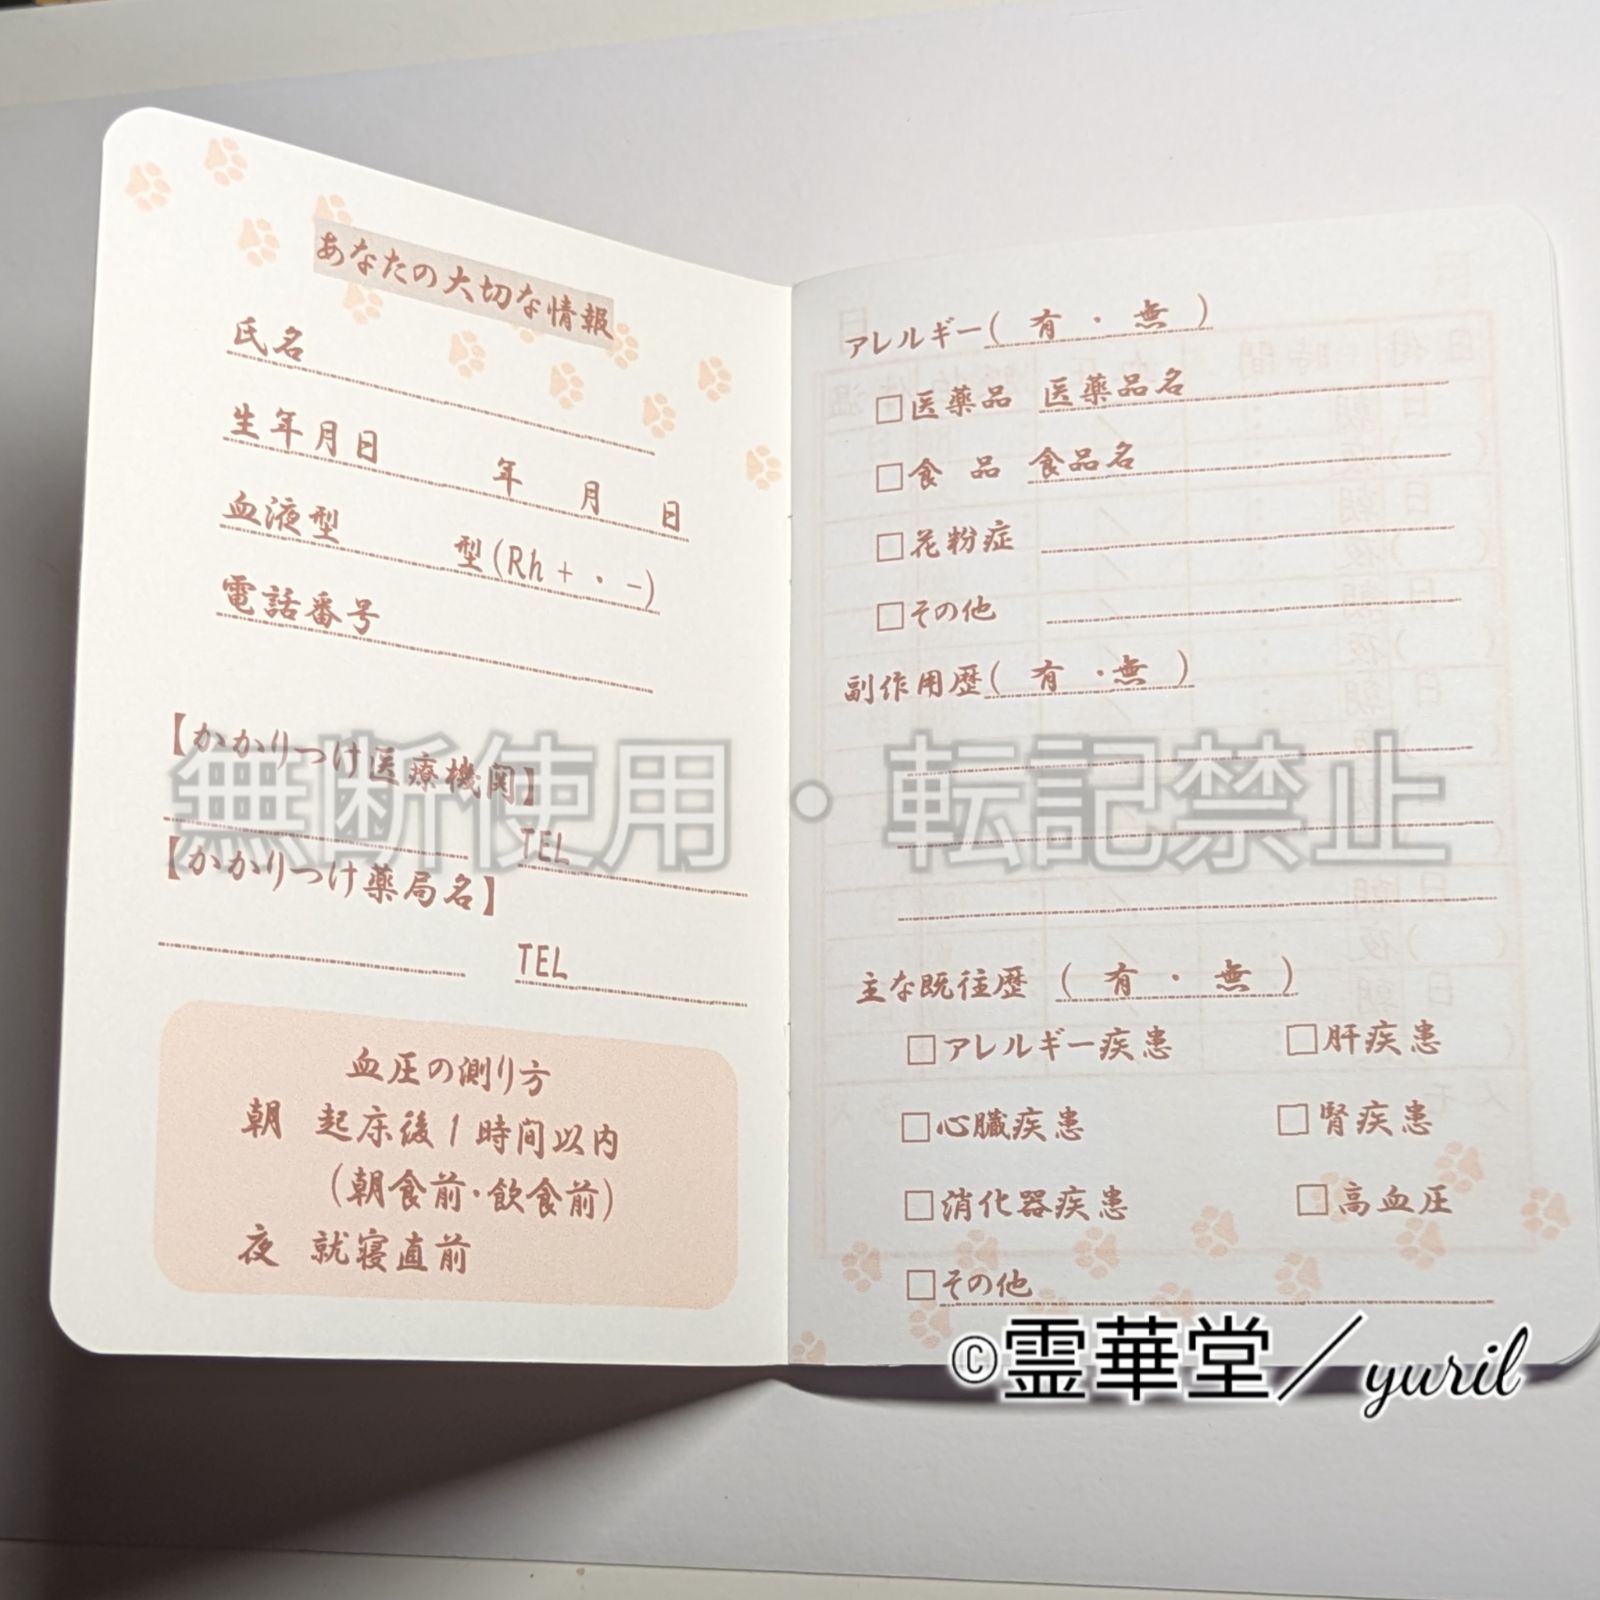 あなたの大切な情報
氏名
生年月日 年 月 日
血液型 型(Rh + ・ -)
電話番号
【かかりつけ医療機関】
TEL
【かかりつけ薬局名】
TEL
血圧の測り方
朝 起床後1時間以内
(朝食前・飲食前)
夜 就寝直前
アレルギー( 有 ・ 無 )
□医薬品 医薬品名
□食 品 食品名
□花粉症
□その他
副作用歴( 有 ・無 )
主な既往歴 ( 有 ・ 無 )
□アレルギー疾患 □肝疾患
□心臓疾患 □腎疾患
□消化器疾患 □高血圧
□その他
無断使用・転記禁止
©霊華堂/yuril